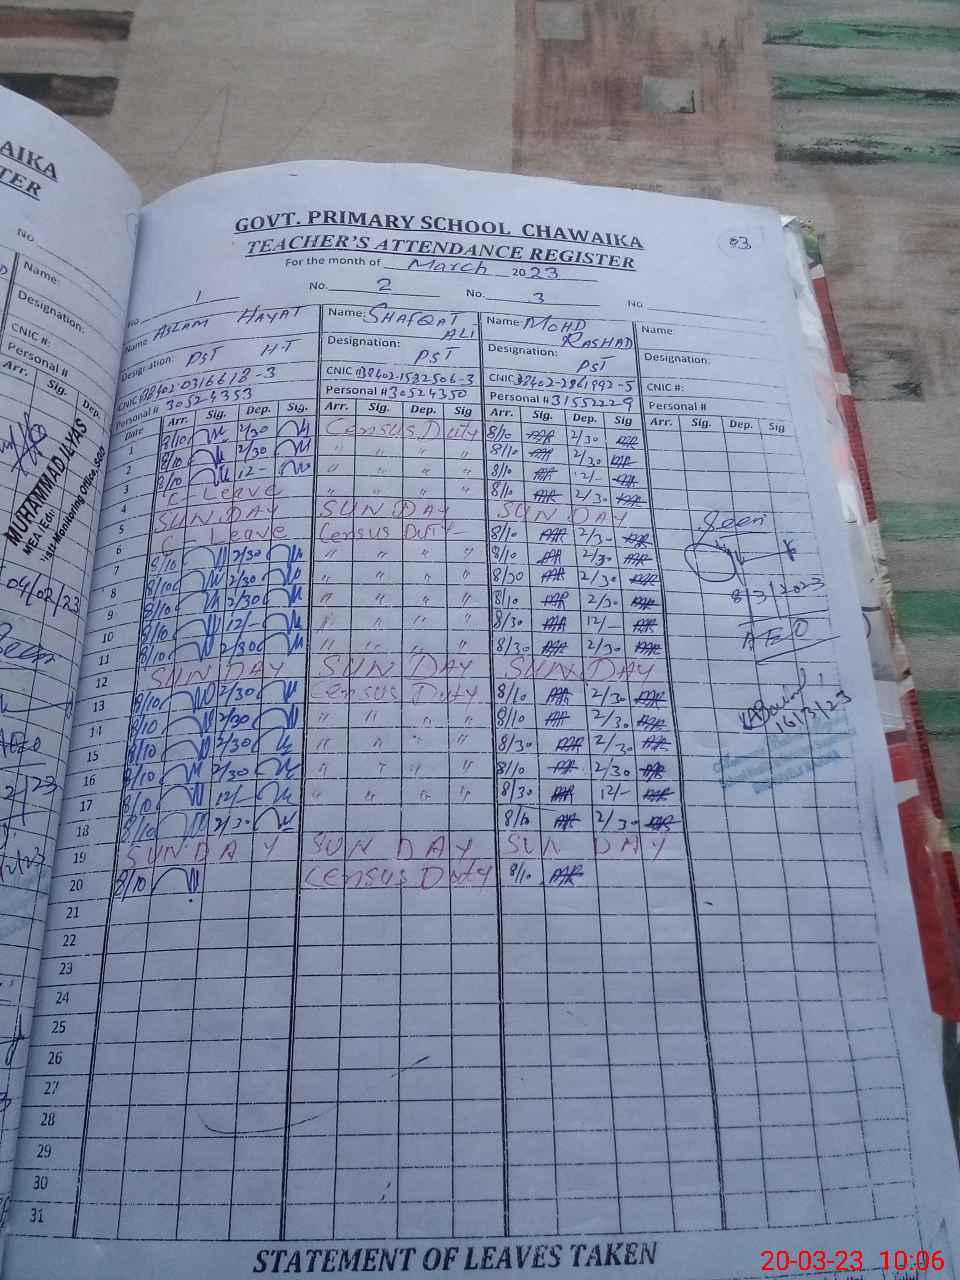 AIKA
TER
No
Name:
Designation:
CNIC #:
Personal #
Arr. Sig. Dep.
MUHAMMAD ILYAS
04/02/23
GOVT. PRIMARY SCHOOL CHAWAIKA
TEACHER'S ATTENDANCE REGISTER
03
For the month of March 2023
No. 1 No. 2 No. 3 No
Name: ASLAM HAYAT Name: SHAFQAT ALI Name: MOHD RASHAD Name:
Designation: PST H.T Designation: PST Designation: PST Designation:
CNIC #: 38402-0316618-3 CNIC #: 38402-1532506-3 CNIC #: 38402-2861992-5 CNIC #:
Personal # 30524353 Personal # 30524350 Personal # 31552229 Personal #
Date Arr. Sig. Dep. Sig. Arr. Sig. Dep. Sig Arr. Sig. Dep. Sig. Arr. Sig. Dep. Sig
1 8/10 2/30 Census Duty 8/10 2/30
2 8/10 2/30 " " " " 8/10 2/30
3 8/10 12/- " " " " 8/10 12/-
4 C-Leave " " " " 8/10 2/30
5 SUNDAY SUNDAY SUNDAY
6 C-Leave Census Duty 8/10 2/30
7 8/10 2/30 " " " " 8/10 2/30
8 8/10 2/30 " " " " 8/30 2/30
9 8/10 2/30 " " " " 8/10 2/30
10 8/10 12/- " " " " 8/30 12/-
11 8/10 2/30 " " " " 8/30 2/30
12 SUNDAY SUNDAY SUNDAY
13 8/10 2/30 Census Duty 8/10 2/30
14 8/10 2/30 " " " " 8/10 2/30
15 8/10 2/30 " " " " 8/30 2/30
16 8/10 2/30 " " " " 8/10 2/30
17 8/10 12/- " " " " 8/30 12/-
18 8/10 2/30 8/10 2/30
19 SUNDAY SUNDAY SUNDAY
20 8/10 Census Duty 8/10
21
22
23
24
25
26
27
28
29
30
31
Seen
8/3/2023
AEO
16/3/23
STATEMENT OF LEAVES TAKEN
20-03-23 10:06